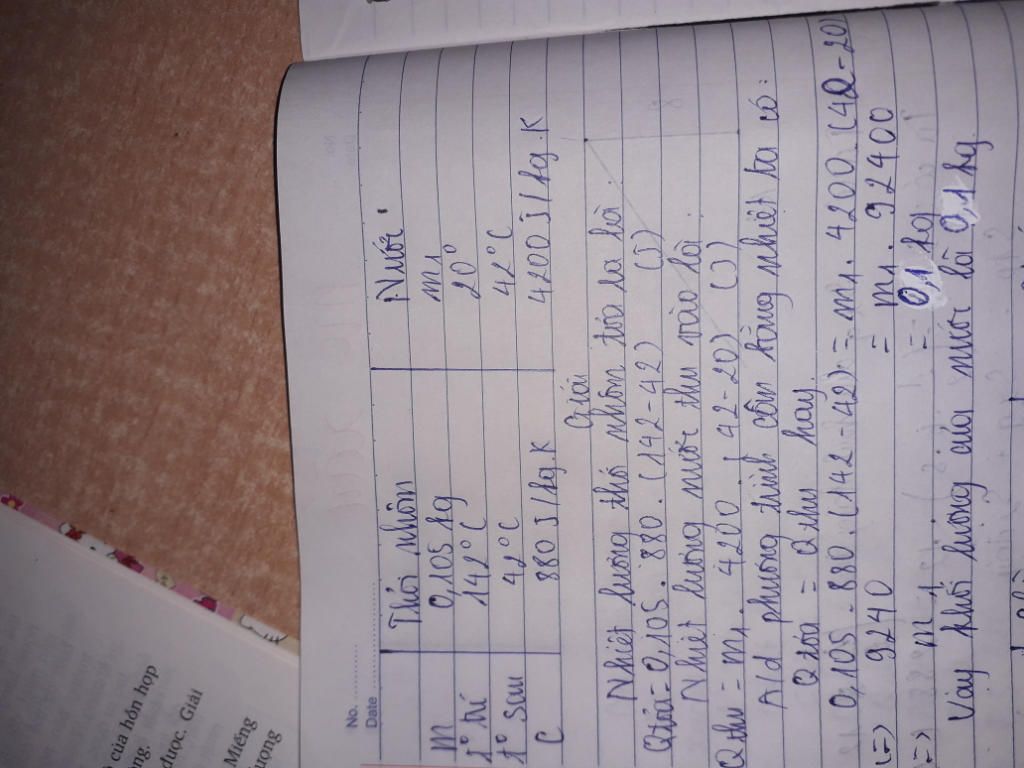 No.
Date
Thỏi nhôm Nước
m 0,105 kg m1
t° trc 142°C 20°
t° sau 42°C 42°C
C 880 J/kg.K 4200 J/kg.K
Giải
Nhiệt lượng thỏi nhôm tỏa ra là.
Qtỏa = 0,105.880.(142-42) (J)
Nhiệt lượng nước thu vào là.
Qthu = m1.4200.(42-20) (J)
A/d phương trình cân bằng nhiệt ta có:
Qtỏa = Qthu hay
0,105.880.(142-42) = m1.4200.(42-20)
(=) 9240 = m1.92400
=) m1 = 0,1 kg
Vậy khối lượng của nước là 0,1 kg.
của hỗn hợp
được. Giải
Miếng